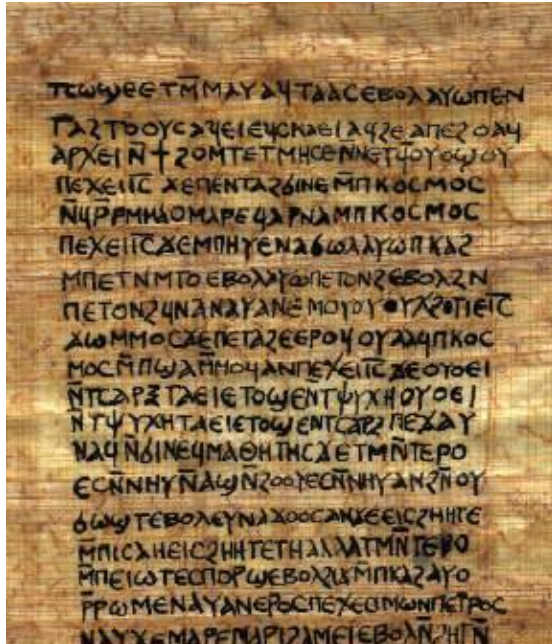 ⲡⲥⲱϣⲉ ⲉⲧⲙ̅ⲙⲁⲩ ⲁϥⲧⲁⲁⲥ ⲉⲃⲟⲗ ⲁⲩⲱ ⲡⲉⲛ
ⲧⲁϩⲧⲟⲟⲩⲥ ⲁϥⲉⲓ ⲉϥⲥⲕⲁⲉⲓ ⲁϥϩⲉ ⲁⲡⲉϩⲟ ⲁϥ
ⲁⲣⲭⲉⲓ ⲛ̅ϯ ϩⲟⲙⲧ ⲉⲧⲙⲏⲥⲉ ⲛⲛⲉⲧϥⲟⲩⲟϣⲟⲩ
ⲡⲉϫⲉ ⲓ̅ⲥ̅ ϫⲉ ⲡⲉⲛⲧⲁϩϭⲓⲛⲉ ⲙ̅ⲡⲕⲟⲥⲙⲟⲥ
ⲛ̅ϥⲣ̅ ⲣⲙⲙⲁⲟ ⲙⲁⲣⲉϥⲁⲣⲛⲁ ⲙⲡⲕⲟⲥⲙⲟⲥ
ⲡⲉϫⲉ ⲓ̅ⲥ̅ ϫⲉ ⲙⲡⲏⲩⲉ ⲛⲁϭⲱⲗ ⲁⲩⲱ ⲡⲕⲁϩ
ⲙⲡⲉⲧⲛⲙⲧⲟ ⲉⲃⲟⲗ ⲁⲩⲱ ⲡⲉⲧⲟⲛϩ ⲉⲃⲟⲗ ϩⲛ
ⲡⲉⲧⲟⲛϩ ϥⲛⲁⲛⲁⲩ ⲁⲛ ⲉⲙⲟⲩ ⲟⲩⲭϩⲟⲧⲓ ⲉⲓ̅ⲥ̅
ϫⲱ ⲙⲙⲟⲥ ϫⲉ ⲡⲉⲧⲁϩⲉ ⲉⲣⲟϥ ⲟⲩⲁⲁϥ ⲡⲕⲟⲥ
ⲙⲟⲥ ⲙ̅ⲡϣⲁ ⲙ̅ⲙⲟϥ ⲁⲛ ⲡⲉϫⲉ ⲓ̅ⲥ̅ ϫⲉ ⲟⲩⲟⲉⲓ
ⲛ̅ⲧⲥⲁⲣⲝ ⲧⲁⲉⲓ ⲉⲧⲟϣⲉ ⲛⲧⲯⲩⲭⲏ ⲟⲩⲟⲉⲓ
ⲛⲧⲯⲩⲭⲏ ⲧⲁⲉⲓ ⲉⲧⲟϣⲉ ⲛⲧⲥⲁⲣⲝ ⲡⲉϫⲁⲩ
ⲛⲁϥ ⲛ̅ϭⲓ ⲛⲉϥⲙⲁⲑⲏⲧⲏⲥ ϫⲉ ⲧⲙⲛ̅ⲧⲉⲣⲟ
ⲉⲥⲛ̅ⲛⲏⲩ ⲛ̅ⲁϣ ⲛ̅ϩⲟⲟⲩ ⲉⲥⲛ̅ⲛⲏⲩ ⲁⲛ ϩⲛ̅ ⲟⲩ
ϭⲱϣⲧ ⲉⲃⲟⲗ ⲉⲩⲛⲁϫⲟⲟⲥ ⲁⲛ ϫⲉ ⲉⲓⲥϩⲏⲏⲧⲉ
ⲙ̅ⲡⲓⲥⲁ ⲏ ⲉⲓⲥϩⲏⲏⲧⲉ ⲧⲏ ⲁⲗⲗⲁ ⲧⲙⲛ̅ⲧⲉⲣⲟ
ⲙ̅ⲡⲉⲓⲱⲧ ⲉⲥⲡⲟⲣϣ ⲉⲃⲟⲗ ϩⲓϫⲙ̅ ⲡⲕⲁϩ ⲁⲩⲱ
ⲣ̅ⲣⲱⲙⲉ ⲛⲁⲩ ⲁⲛ ⲉⲣⲟⲥ ⲡⲉϫⲉ ⲥⲓⲙⲱⲛ ⲡⲉⲧⲣⲟⲥ
ⲛⲁⲩ ϫⲉ ⲙⲁⲣⲉ ⲙⲁⲣⲓϩⲁⲙ ⲉⲓ ⲉⲃⲟⲗ ⲛ̅ϩⲏⲧⲛ̅